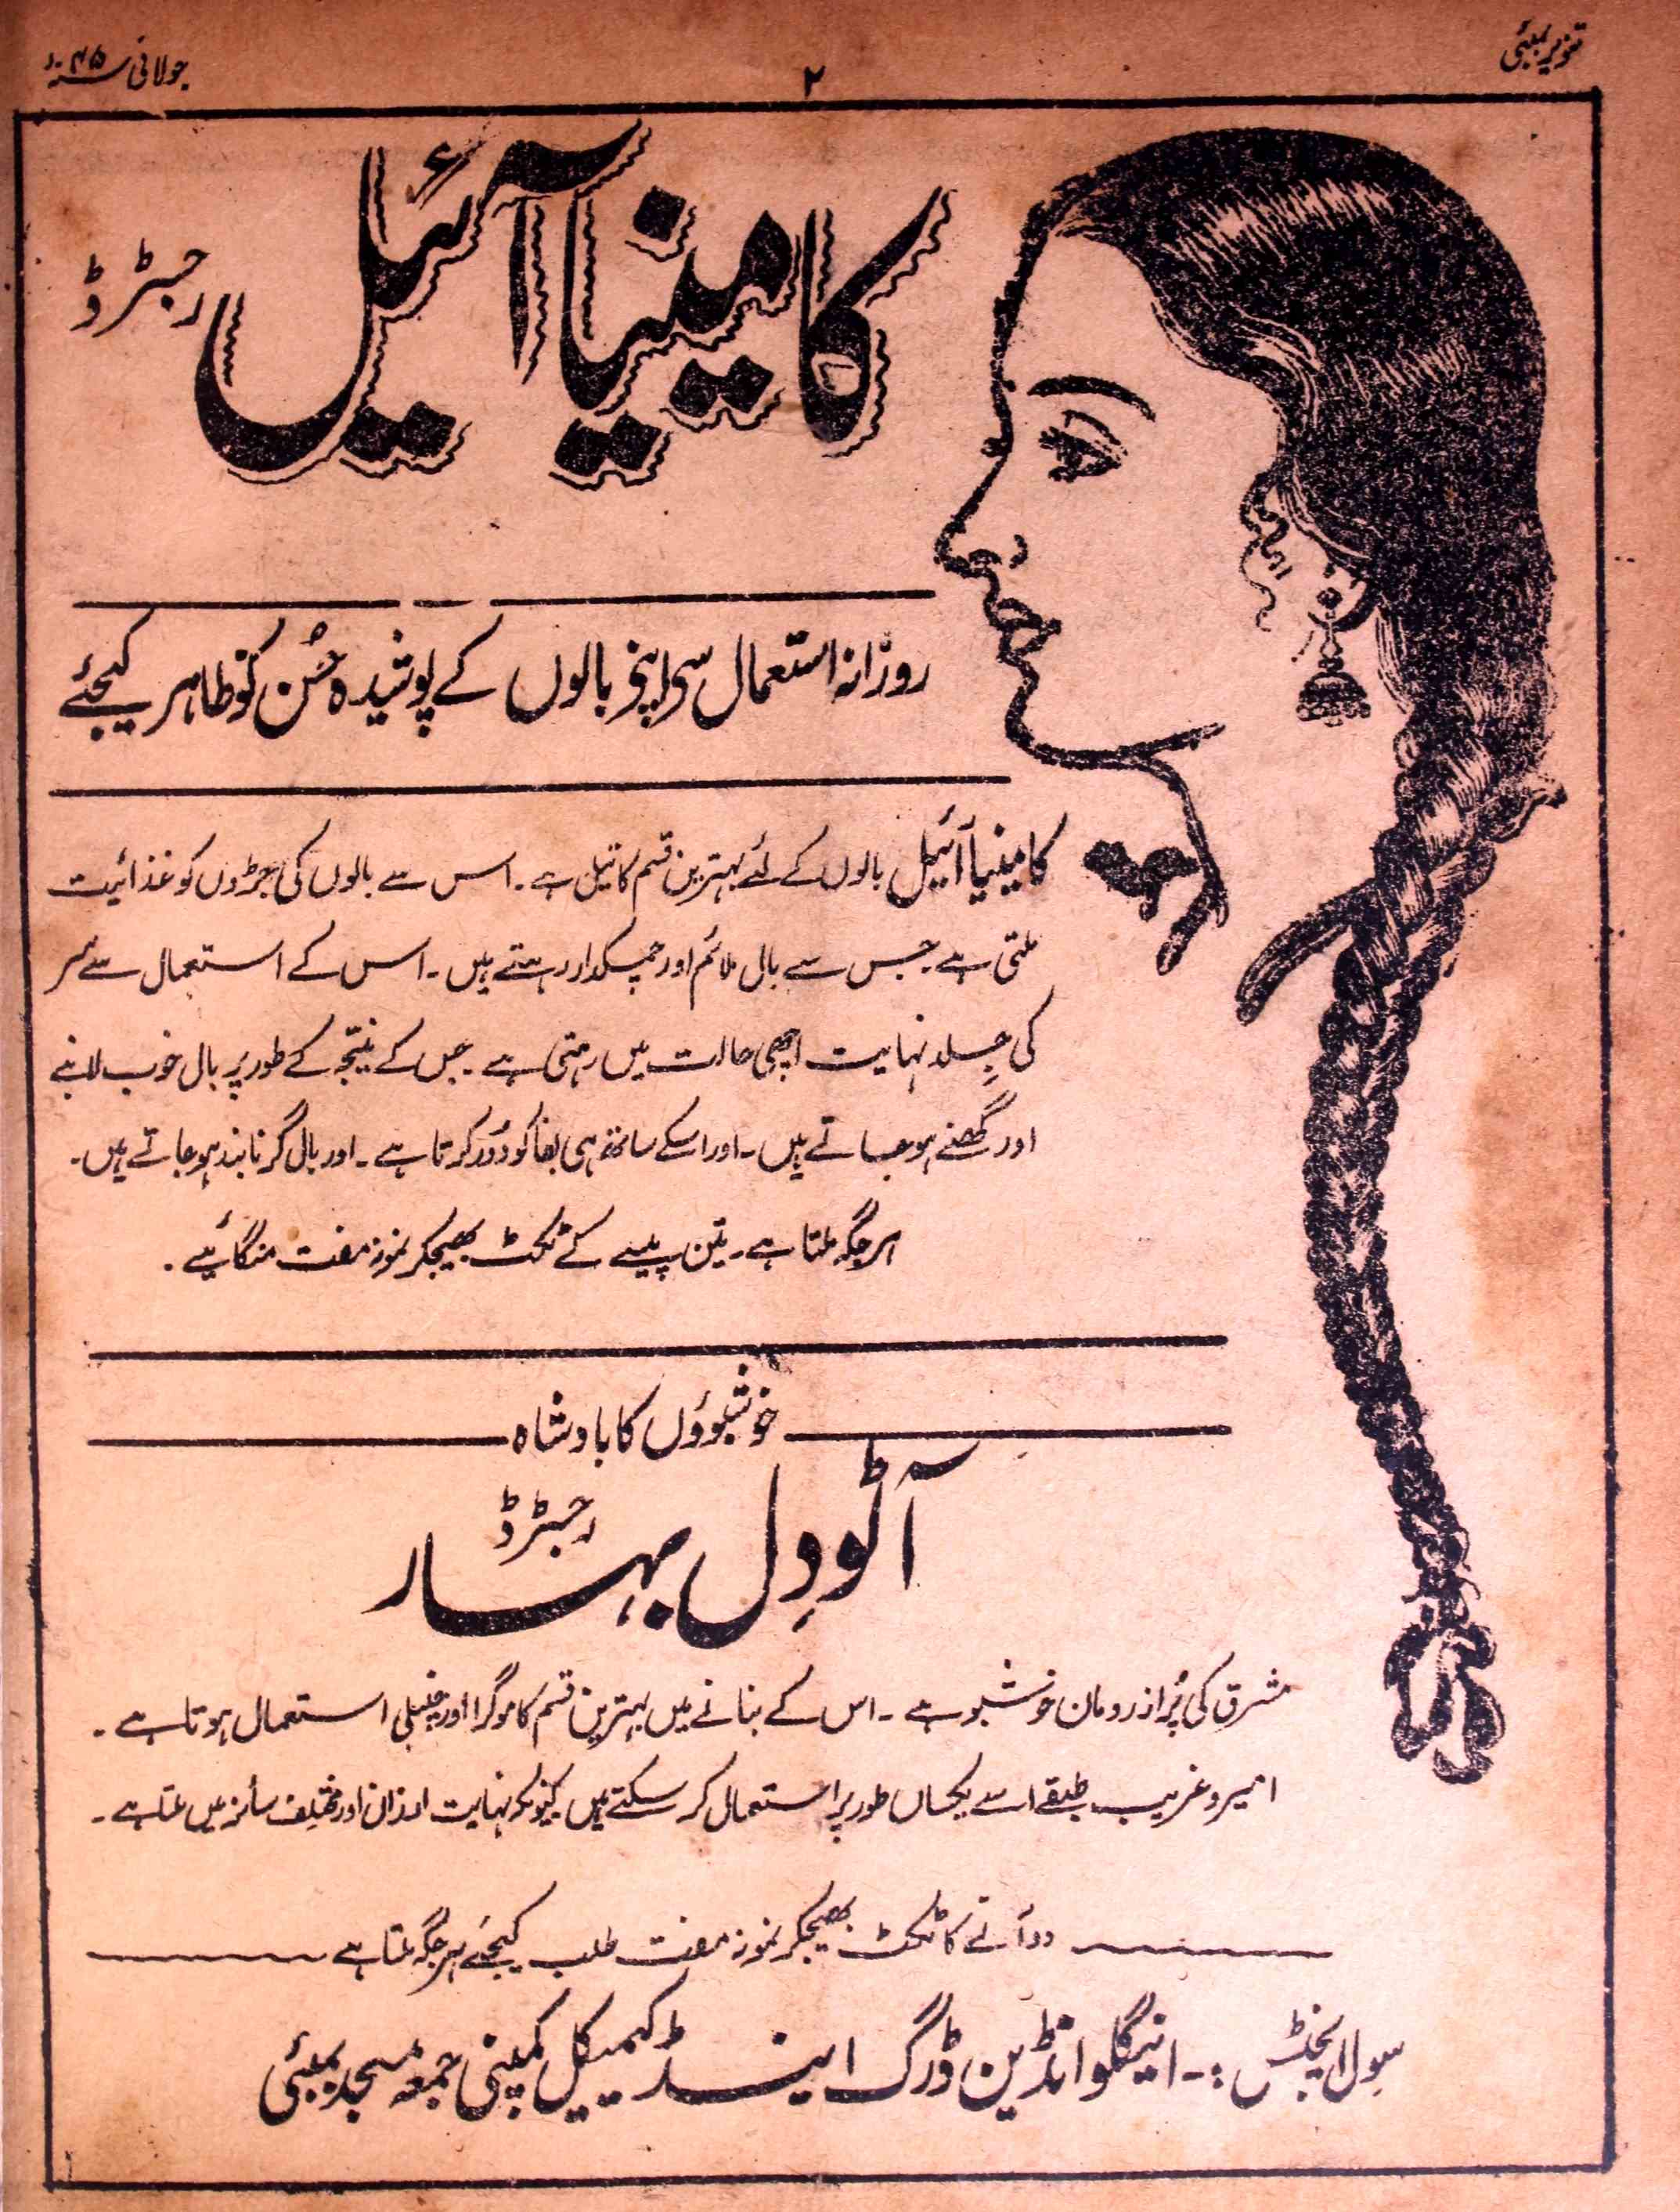 تنویر بمبئی
۲
جولائی سنہ ۴۵ء
کامینیا آئیل
رجسٹرڈ
روزانہ استعمال سے اپنے بالوں کے پوشیدہ حُسن کو ظاہر کیجئے
کامینیا آئیل بالوں کے لئے بہترین قسم کا تیل ہے۔ اس سے بالوں کی جڑوں کو غذائیت
ملتی ہے جس سے بال ملائم اور چمکدار رہتے ہیں۔ اس کے استعمال سے سر
کی جِلد نہایت اچھی حالت میں رہتی ہے جس کے نتیجے کے طور پر بال خوب لانبے
اور گھنے ہو جاتے ہیں۔ اور اسکے ساتھ ہی بفا کو دُور کرتا ہے۔ اور بال گرنا بند ہو جاتے ہیں۔
ہر جگہ ملتا ہے۔ تین پیسے کے ٹکٹ بھیجکر نمونہ مفت منگائیے۔
خوشبوؤں کا بادشاہ
آٹو دِل بہار
رجسٹرڈ
مشرق کی پُر از رومان خوشبو ہے۔ اس کے بنانے میں بہترین قسم کا موگرا اور چنبلی استعمال ہوتا ہے۔
امیر و غریب طبقے اسے یکساں طور پر استعمال کر سکتے ہیں کیونکہ نہایت ارزاں اور مختلف سائز میں ملتا ہے۔
دو آنے کا ٹکٹ بھیجکر نمونہ مفت طلب کیجئے ہر جگہ ملتا ہے
سول ایجنٹس :- اینگلو انڈین ڈرگ اینڈ کیمیکل کمپنی جمعہ مسجد بمبئی